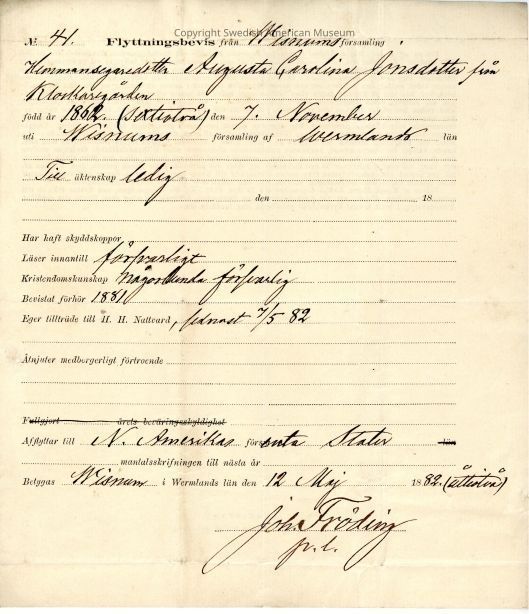 Copyright Swedish American Museum
№ 41. Flyttningsbevis från Wisnums församling
Hemmansegaredotter Augusta Carolina Jonsdotter från
Klockaregården
född år 1862. (sextiotvå) den 7. November
uti Wisnums församling af Wermlands län
Till äktenskap ledig
den 18
Har haft skyddskoppor
Läser innantill försvarligt
Kristendomskunskap någorlunda försvarlig
Bevistat förhör 1881
Eger tillträde till H. H. Nattvard, senast 7/5 82
Åtnjuter medborgerligt förtroende
Fullgjort årets beväringsskyldighet
Afflyttar till N. Amerikas förenta Stater län
mantalsskrifningen till nästa år
Betygas Wisnum i Wermlands län den 12 Maj 1882. (åttiotvå)
Joh. Fröding
p. l.